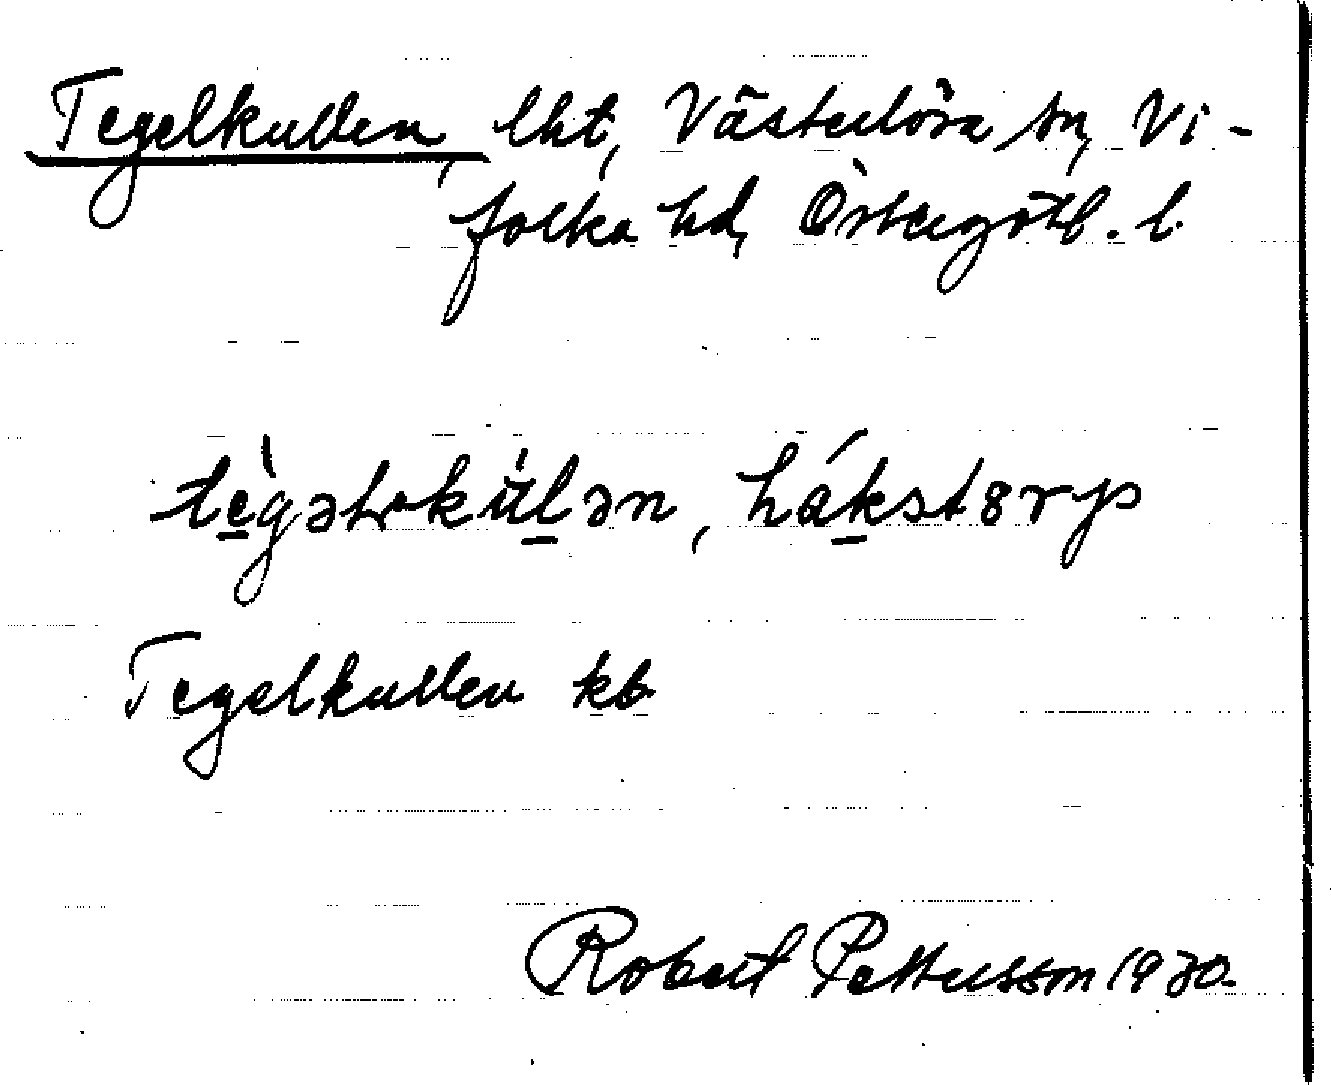 Tegelkullen, lht, Västerlösa sn, Vi-
folka hd, Östergötl. l.
tègəlkùlən, hákstørp
Tegelkullen kb.
Robert Pettersson 1930.